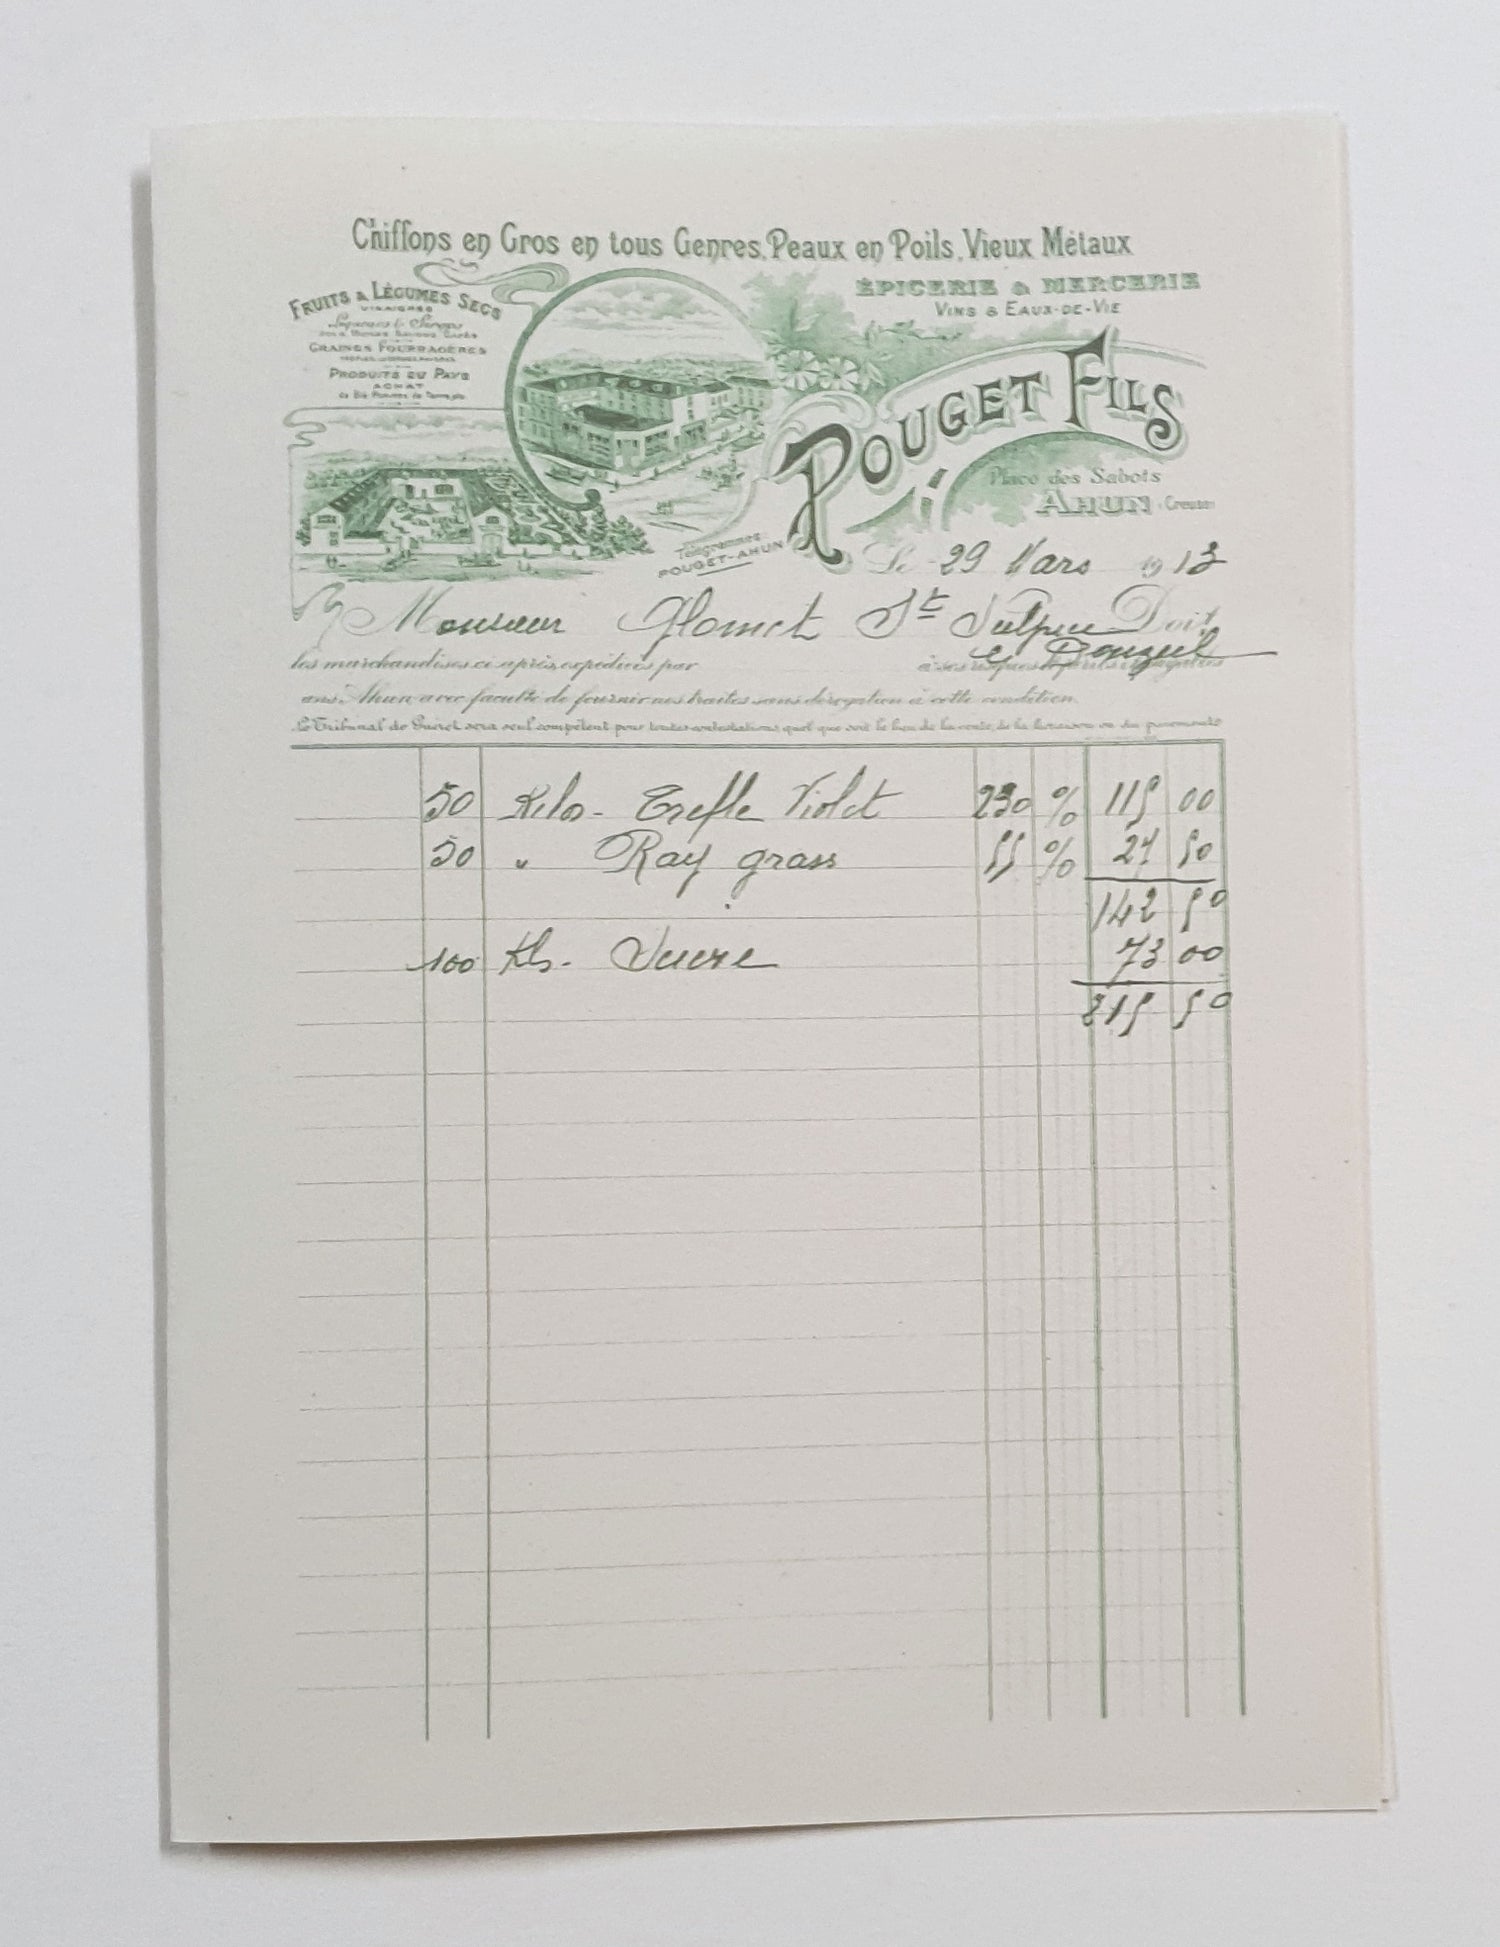 Chiffons en Gros en tous Genres, Peaux en Poils, Vieux Métaux
FRUITS & LÉGUMES SECS
VINAIGRES
Liqueurs & Sirops
GRAINES FOURRAGÈRES
PRODUITS DU PAYS
ACHAT
de Blé Pommes de Terre, etc
ÉPICERIE & MERCERIE
VINS & EAUX-DE-VIE
POUGET FILS
Place des Sabots
AHUN (Creuse)
Télégrammes
POUGET-AHUN
Le 29 Mars 1913
Monsieur Glomet St Sulpice Doit
les marchandises ci après, expédiées par à ses risques et périls
ans Ahun avec faculté de fournir nos traites sans dérogation à cette condition.
Le Tribunal de Guéret sera seul compétent pour toutes contestations, quel que soit le lieu de la vente, de la livraison ou du paiement
50 Kilos - Trefle Violet 230 % 115 00
50 " Ray grass 55 % 27 50
142 50
100 Ks - Sucre 73 00
215 50